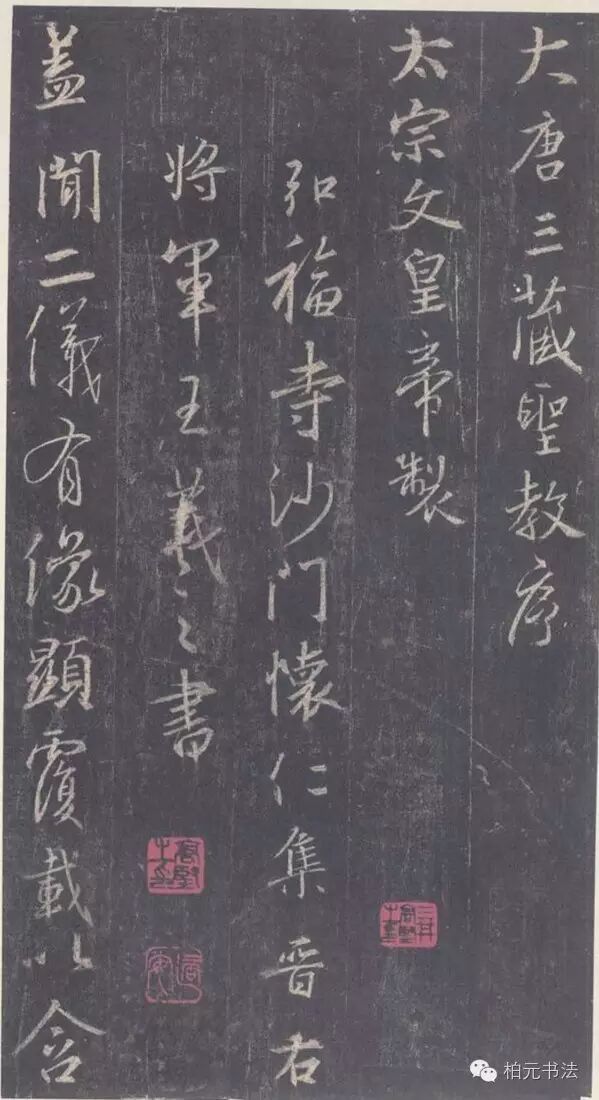 大唐三藏聖教序
太宗文皇帝製
弘福寺沙門懷仁集晉右
將軍王羲之書
蓋聞二儀有像顯覆載以含
柏元书法